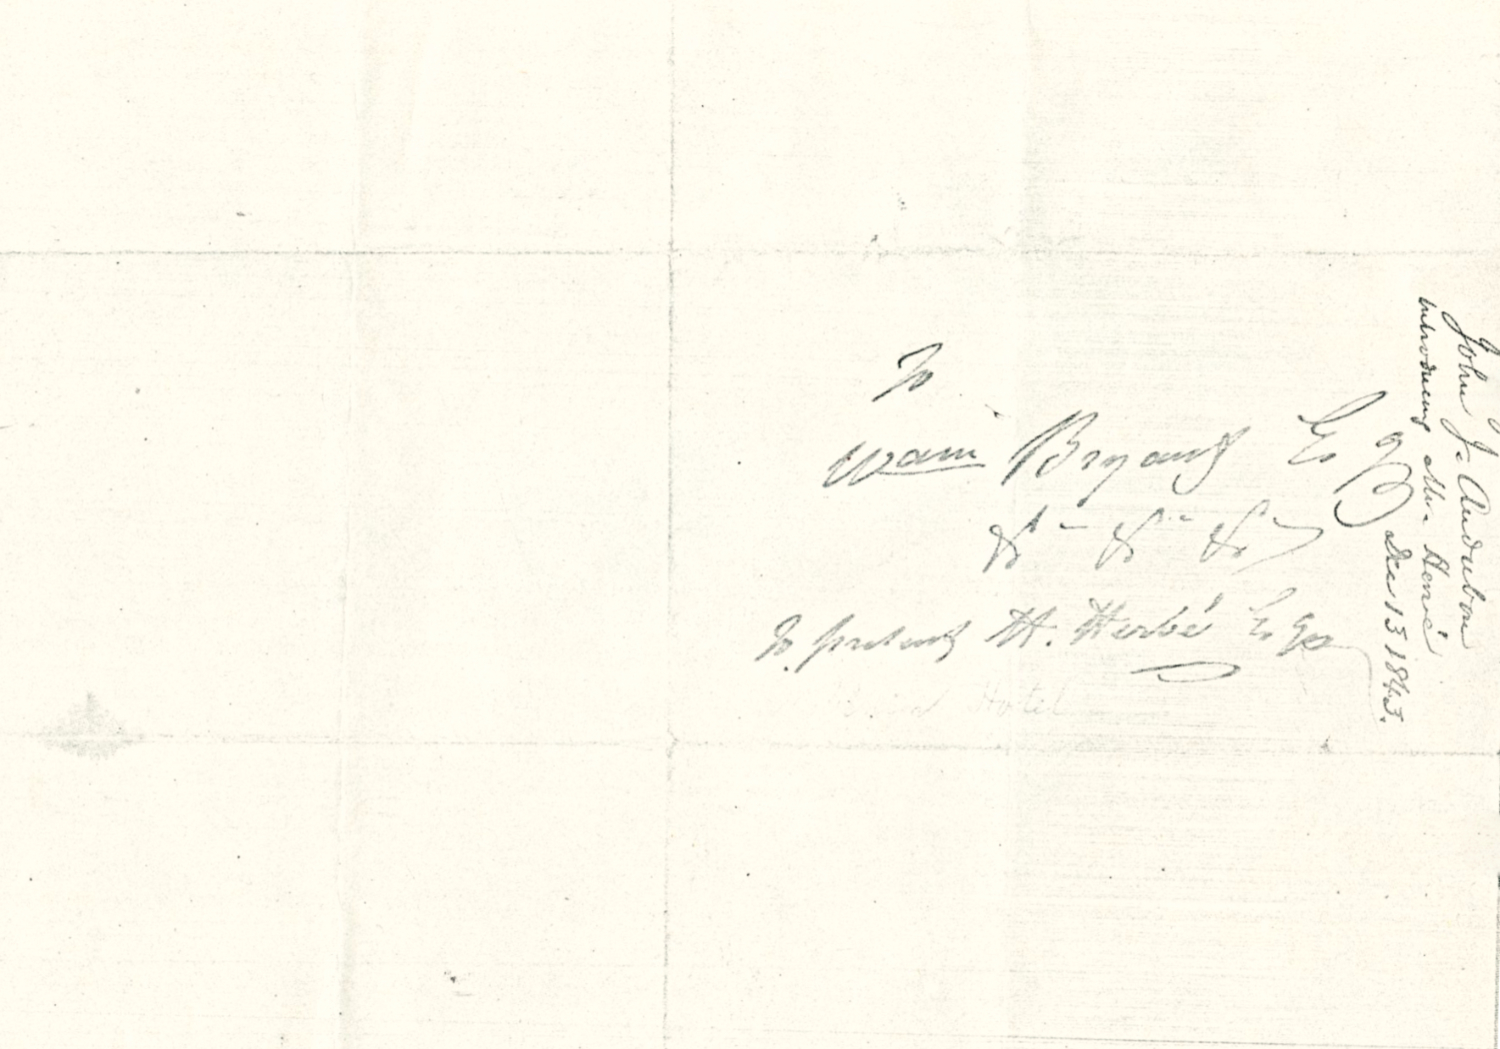 To
Wam Bryant Esqr
&c - &c - &c
To present H. Herbé Esqr
Hotel
John J. Audubon
introducing Mr. Herbé
Dec 13 1843.